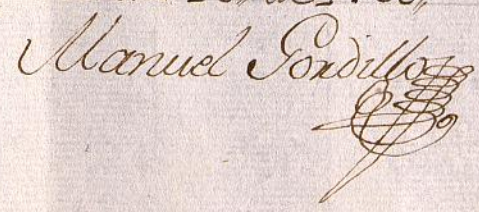 Manuel Gordillo